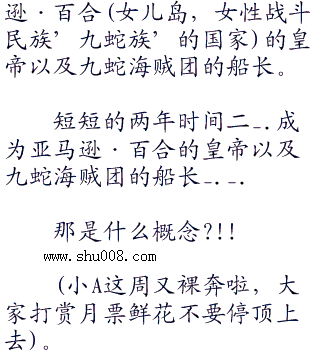 逊·百合(女儿岛，女性战斗
民族’九蛇族’的国家)的皇
帝以及九蛇海贼团的船长。
短短的两年时间二_..成
为亚马逊·百合的皇帝以及
九蛇海贼团的船长_.._.
那是什么概念?!!
www.shu008.com
(小A这周又裸奔啦，大
家打赏月票鲜花不要停顶上
去)。